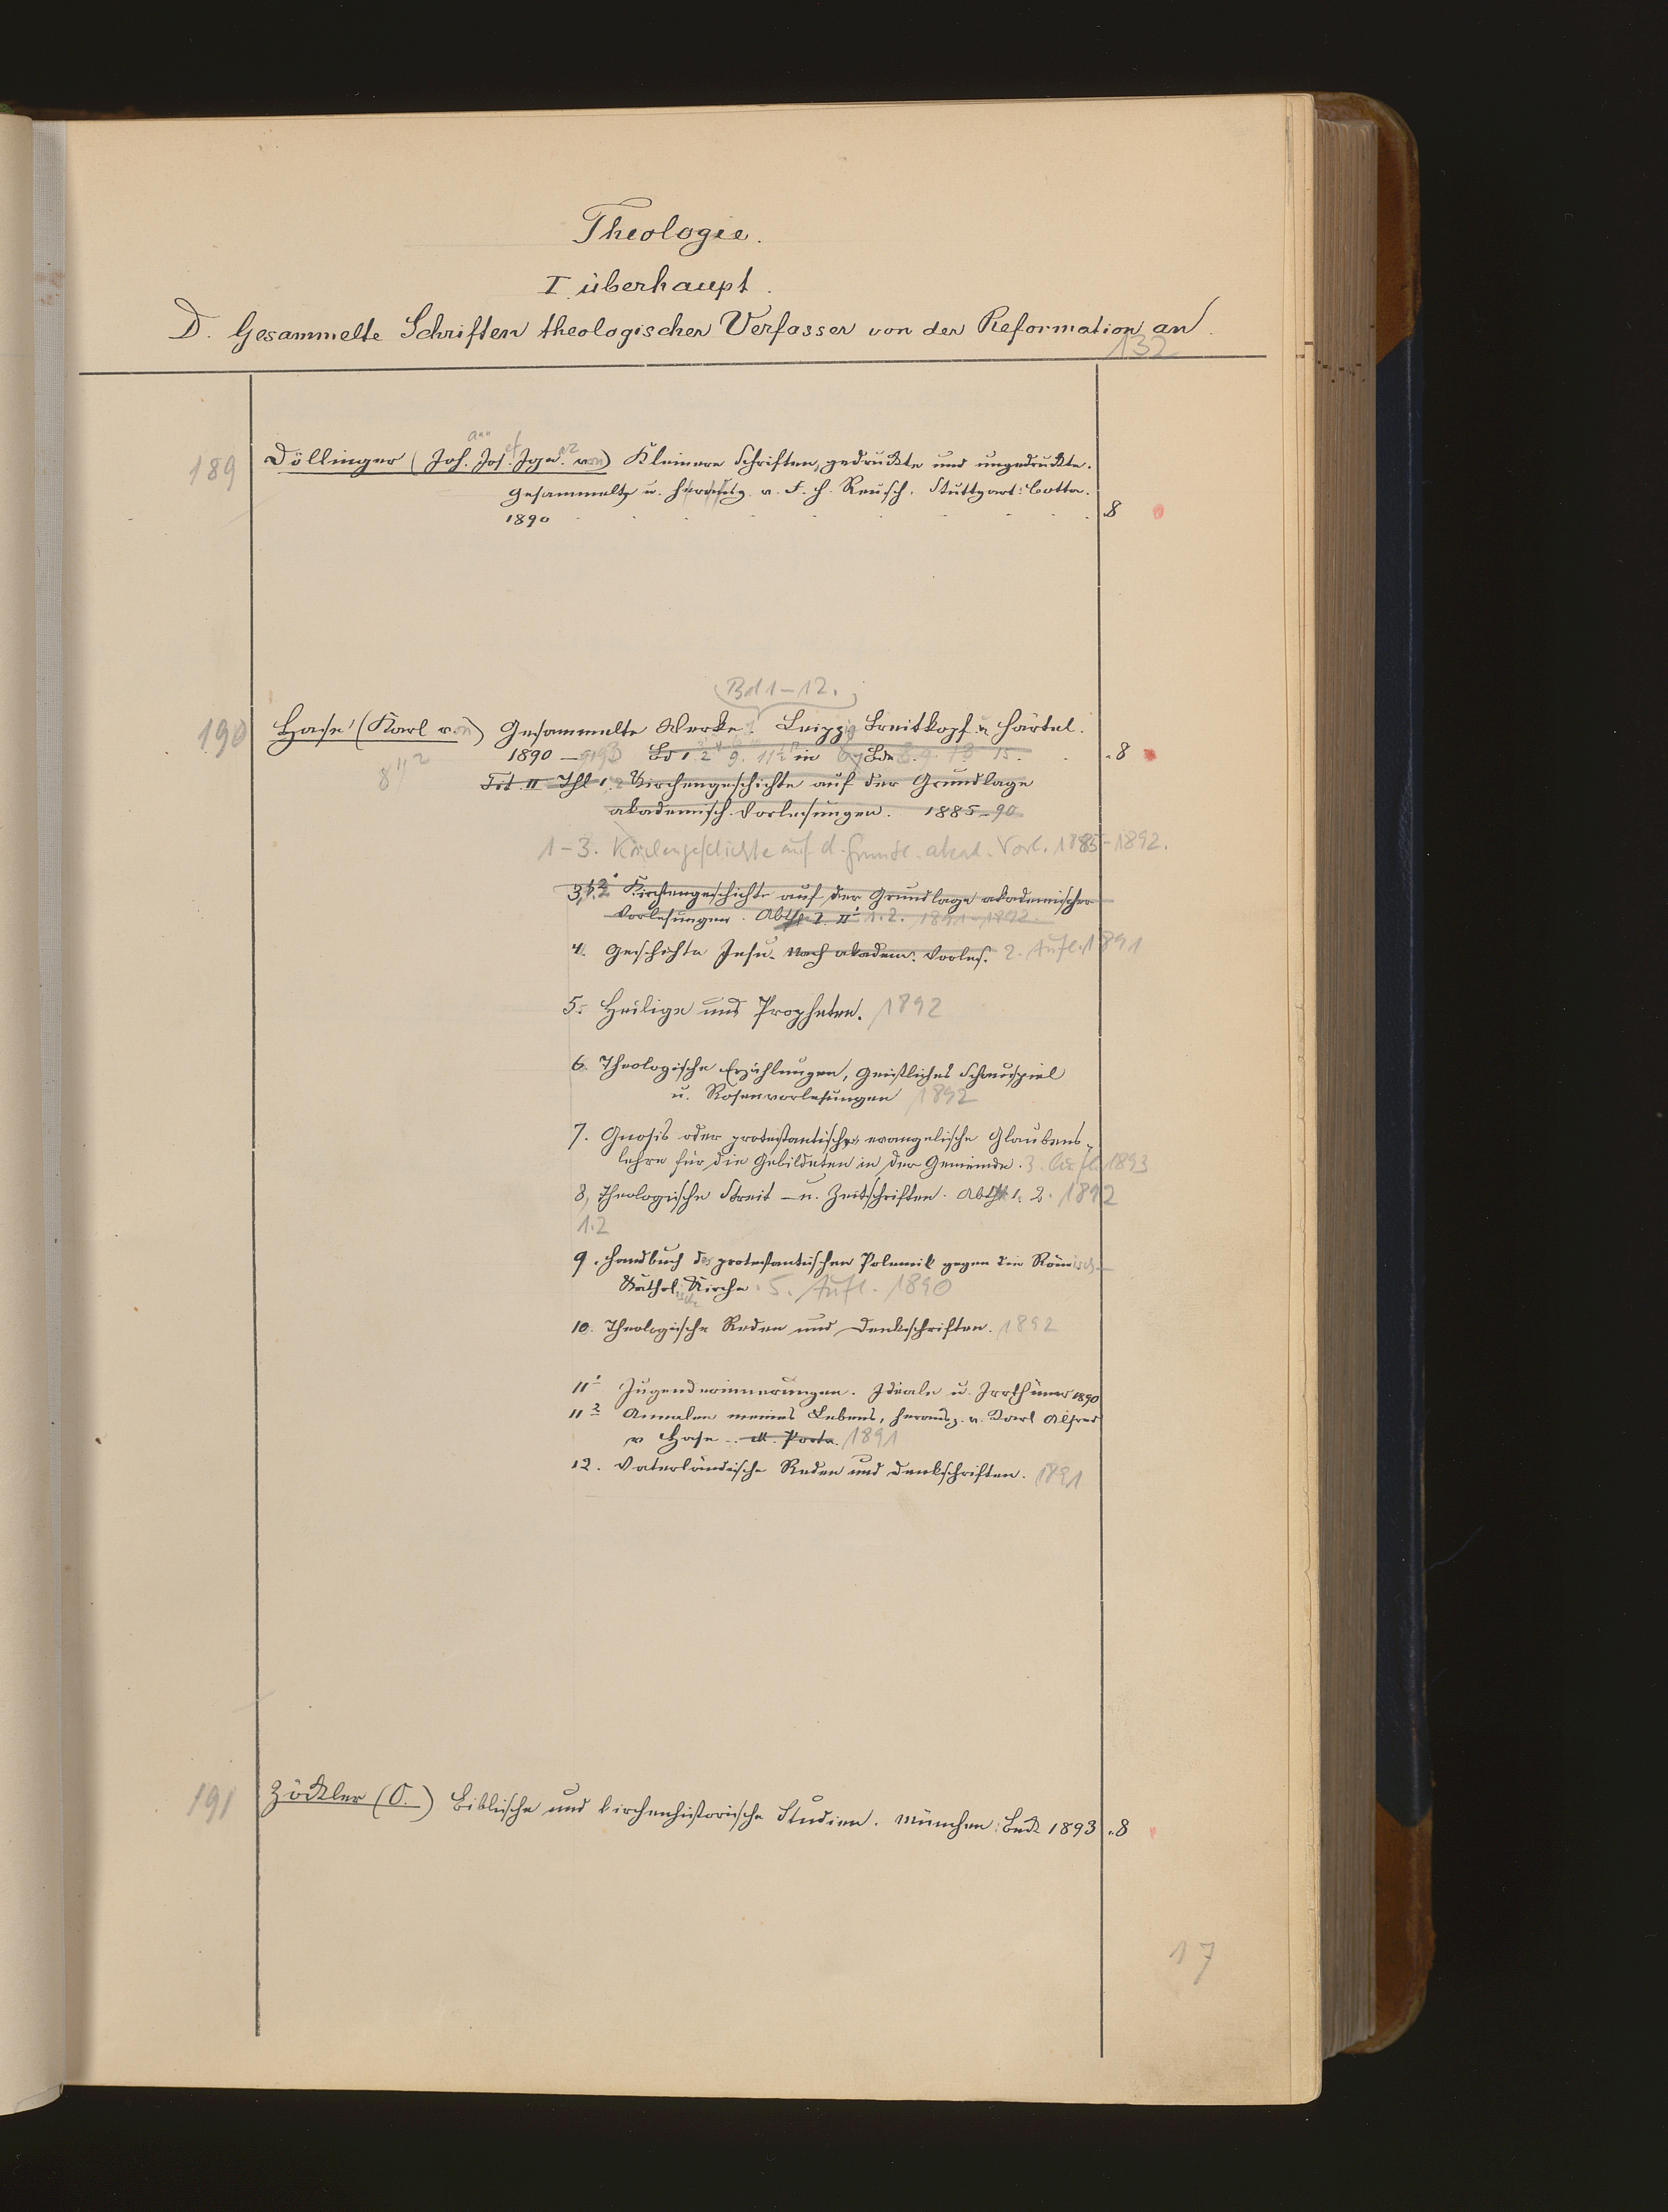 Theologie.
I. überhaupt.
D. Gesammelte Schriften theologischer Verfasser von der Reformation an.
132
189 Döllinger (Joh. Jos. Ignaz von) Kleinere Schriften, gedruckte und ungedruckte.
Gesammelt u. herausg. v. F. H. Reusch. Stuttgart: Cotta.
1890 8
(Bd 1-12.)
190 Hase (Karl von) Gesammelte Werke. Leipzig Breitkopf u. Härtel.
1890-93 8
Thl 1. 2 Kirchengeschichte auf der Grundlage
akademisch. Vorlesungen. 1885-90
1-3. Kirchengeschichte auf d. Grundl. akad. Vorl. 1885-1892.
3, 1. 2 Kirchengeschichte auf der Grundlage akademischer
Vorlesungen. 1. 2. 1891-1892.
4. Geschichte Jesu. Nach akadem. Vorles. 2. Aufl. 1891
5. Heilige und Propheten. 1892
6. Theologische Erzählungen, Geistliches Schauspiel
u. Rosenvorlesungen 1892
7. Gnosis oder protestantisch-evangelische Glaubens-
lehre für die Gebildeten in der Gemeinde. 3. Aufl. 1893
8, Theologische Streit- u. Zeitschriften. Abth 1. 2. 1892
1.2
9. Handbuch der protestantischen Polemik gegen die Römisch-
Kathol. Kirche. 5. Aufl. 1890
10. Theologische Reden und Denkschriften. 1892
11 1 Jugenderinnerungen. Ideale u. Irrthümer 1890
11 2 Annalen meines Lebens, herausg. v. Karl Alfred
v Hase. 1891
12. Vaterländische Reden und Denkschriften. 1891
191 Zöckler (O.) Biblische und kirchenhistorische Studien. München: Beck 1893. 8
17